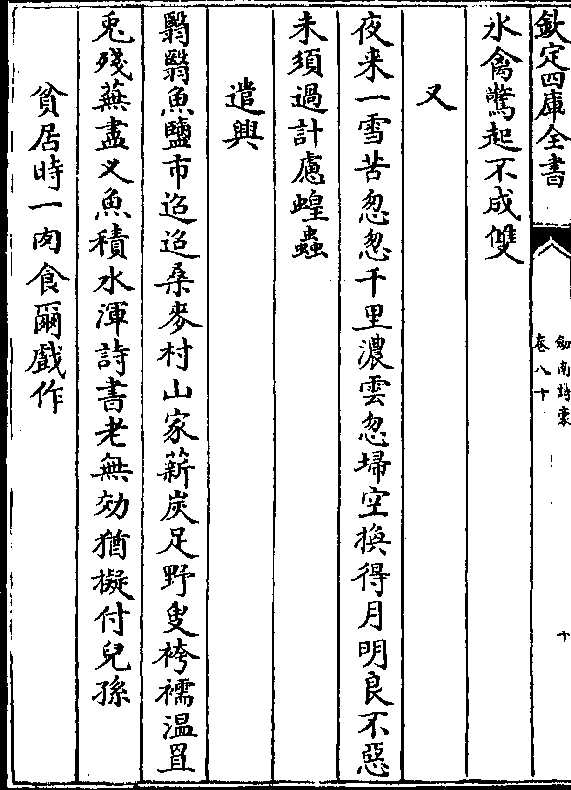 欽定四庫全書
劍南詩稾
卷八十
十
水禽驚起不成雙
又
夜来一雪苦怱怱千里濃雲忽埽空換得月明良不惡
未須過計慮蝗蟲
遣興
翳翳魚鹽市迢迢桑麥村山家薪炭足野叟袴襦温罝
兎殘蕪盡叉魚積水渾詩書老無効猶擬付兒孫
貧居時一肉食爾戲作